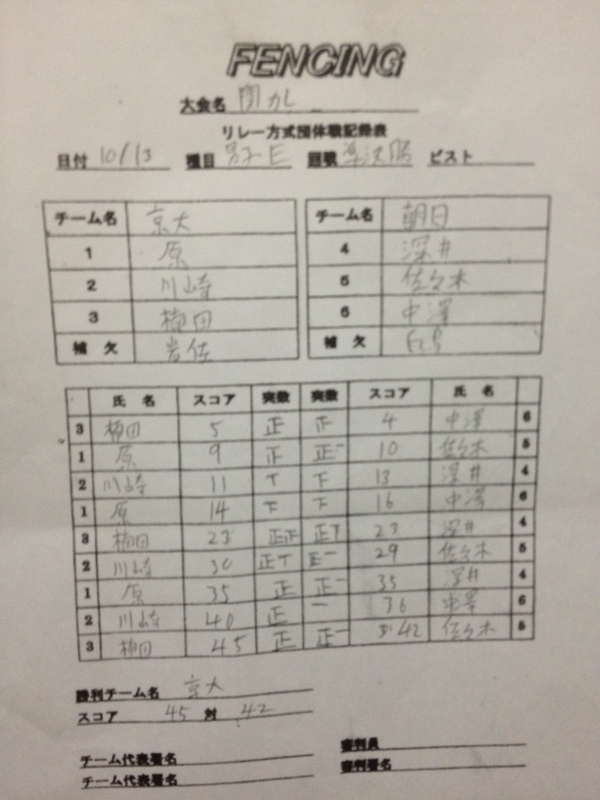 FENCING
大会名 関カレ
リレー方式団体戦記録表
日付 10/13 種目 男子E 回戦 準決勝 ピスト
チーム名 京大
1 原
2 川崎
3 楠田
補欠 岩佐
チーム名 朝日
4 深井
5 佐々木
6 中澤
補欠
氏名 スコア 突数 突数 スコア 氏名
3 楠田 5 正 正 4 中澤 6
1 原 9 正 正一 10 佐々木 5
2 川崎 11 T 下 13 深井 4
1 原 14 下 下 16 中澤 6
3 楠田 23 正正 正T 23 深井 4
2 川崎 30 正T 正一 29 佐々木 5
1 原 35 正 正一 35 深井 4
2 川崎 40 正 一 36 中澤 6
3 楠田 45 正 正一 42 佐々木 5
勝利チーム名 京大
スコア 45 対 42
チーム代表署名
チーム代表署名
審判員
審判署名